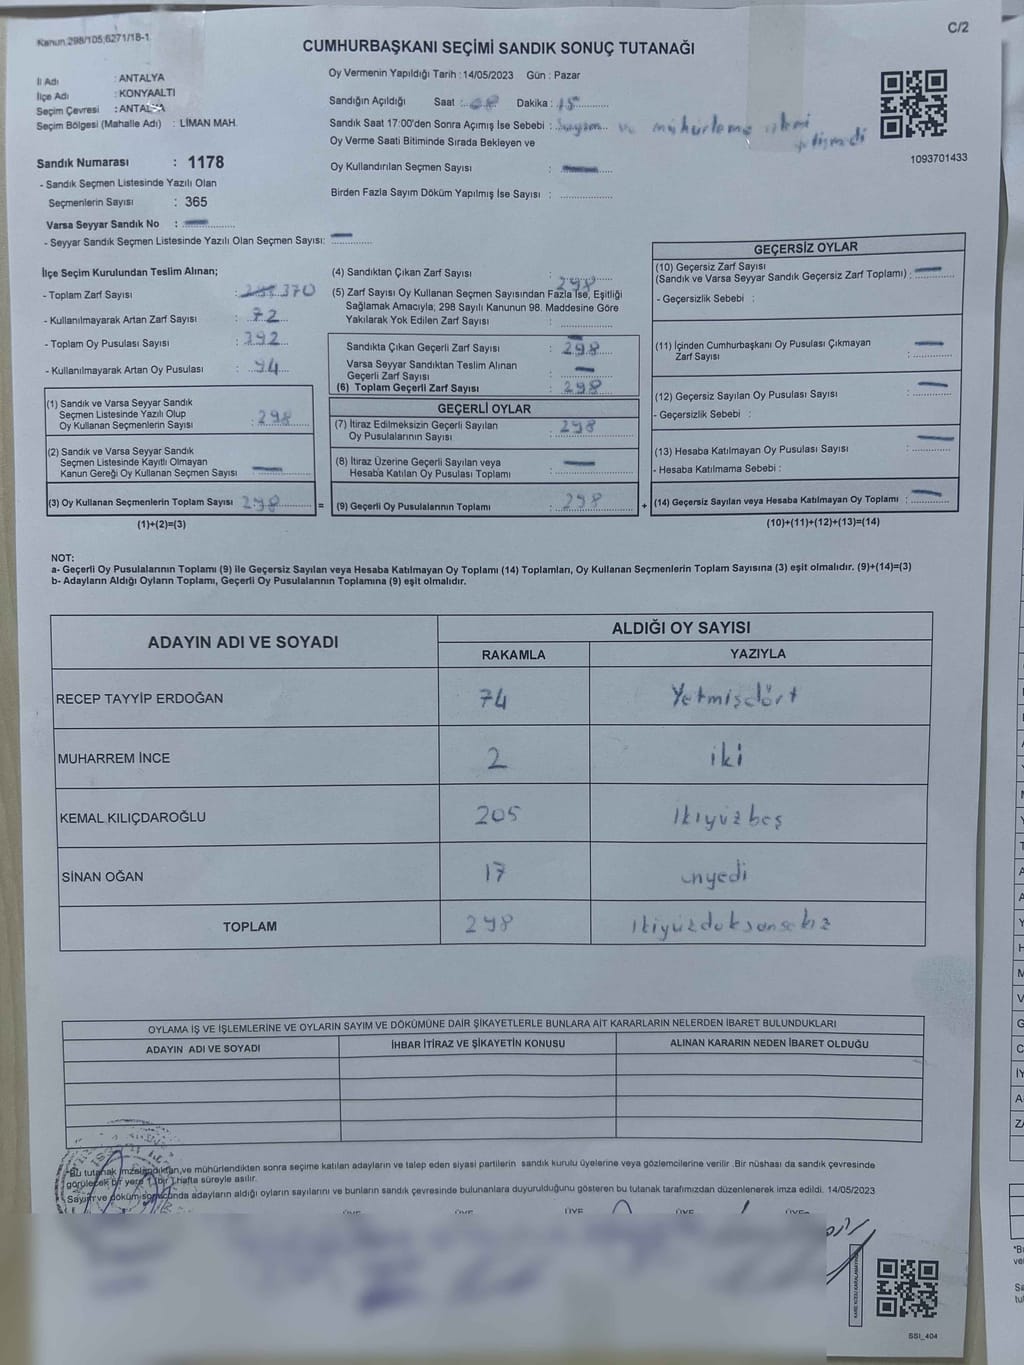 Kanun 298/105;6271/18-1
C/2
CUMHURBAŞKANI SEÇİMİ SANDIK SONUÇ TUTANAĞI
İl Adı : ANTALYA
İlçe Adı : KONYAALTI
Seçim Çevresi : ANTALYA
Seçim Bölgesi (Mahalle Adı) : LİMAN MAH.
Sandık Numarası : 1178
- Sandık Seçmen Listesinde Yazılı Olan
Seçmenlerin Sayısı : 365
Varsa Seyyar Sandık No : —
- Seyyar Sandık Seçmen Listesinde Yazılı Olan Seçmen Sayısı: —
Oy Vermenin Yapıldığı Tarih : 14/05/2023 Gün : Pazar
Sandığın Açıldığı Saat : 08 Dakika : 15
Sandık Saat 17:00'den Sonra Açımış İse Sebebi : Sayım ve mühürleme işlemi
Oy Verme Saati Bitiminde Sırada Bekleyen ve
Oy Kullandırılan Seçmen Sayısı : —
Birden Fazla Sayım Döküm Yapılmış İse Sayısı :
1093701433
İlçe Seçim Kurulundan Teslim Alınan;
- Toplam Zarf Sayısı : 370
- Kullanılmayarak Artan Zarf Sayısı : 72
- Toplam Oy Pusulası Sayısı : 392
- Kullanılmayarak Artan Oy Pusulası : 94
(1) Sandık ve Varsa Seyyar Sandık
Seçmen Listesinde Yazılı Olup
Oy Kullanan Seçmenlerin Sayısı : 298
(2) Sandık ve Varsa Seyyar Sandık
Seçmen Listesinde Kayıtlı Olmayan
Kanun Gereği Oy Kullanan Seçmen Sayısı : —
(3) Oy Kullanan Seçmenlerin Toplam Sayısı : 298 =
(1)+(2)=(3)
(4) Sandıktan Çıkan Zarf Sayısı : 298
(5) Zarf Sayısı Oy Kullanan Seçmen Sayısından Fazla İse, Eşitliği
Sağlamak Amacıyla; 298 Sayılı Kanunun 98. Maddesine Göre
Yakılarak Yok Edilen Zarf Sayısı :
Sandıkta Çıkan Geçerli Zarf Sayısı : 298
Varsa Seyyar Sandıktan Teslim Alınan
Geçerli Zarf Sayısı : —
(6) Toplam Geçerli Zarf Sayısı : 298
GEÇERLİ OYLAR
(7) İtiraz Edilmeksizin Geçerli Sayılan
Oy Pusulalarının Sayısı : 298
(8) İtiraz Üzerine Geçerli Sayılan veya
Hesaba Katılan Oy Pusulası Toplamı : —
(9) Geçerli Oy Pusulalarının Toplamı : 298 +
GEÇERSİZ OYLAR
(10) Geçersiz Zarf Sayısı
(Sandık ve Varsa Seyyar Sandık Geçersiz Zarf Toplamı) : —
- Geçersizlik Sebebi :
(11) İçinden Cumhurbaşkanı Oy Pusulası Çıkmayan
Zarf Sayısı : —
(12) Geçersiz Sayılan Oy Pusulası Sayısı : —
- Geçersizlik Sebebi :
(13) Hesaba Katılmayan Oy Pusulası Sayısı : —
- Hesaba Katılmama Sebebi :
(14) Geçersiz Sayılan veya Hesaba Katılmayan Oy Toplamı : —
(10)+(11)+(12)+(13)=(14)
NOT:
a- Geçerli Oy Pusulalarının Toplamı (9) ile Geçersiz Sayılan veya Hesaba Katılmayan Oy Toplamı (14) Toplamları, Oy Kullanan Seçmenlerin Toplam Sayısına (3) eşit olmalıdır. (9)+(14)=(3)
b- Adayların Aldığı Oyların Toplamı, Geçerli Oy Pusulalarının Toplamına (9) eşit olmalıdır.
ADAYIN ADI VE SOYADI ALDIĞI OY SAYISI
RAKAMLA YAZIYLA
RECEP TAYYİP ERDOĞAN 74 Yetmişdört
MUHARREM İNCE 2 iki
KEMAL KILIÇDAROĞLU 205 ikiyüzbeş
SİNAN OĞAN 17 onyedi
TOPLAM 298 ikiyüzdoksansekiz
OYLAMA İŞ VE İŞLEMLERİNE VE OYLARIN SAYIM VE DÖKÜMÜNE DAİR ŞİKAYETLERLE BUNLARA AİT KARARLARIN NELERDEN İBARET BULUNDUKLARI
ADAYIN ADI VE SOYADI İHBAR İTİRAZ VE ŞİKAYETİN KONUSU ALINAN KARARIN NEDEN İBARET OLDUĞU
Bu tutanak imzalandıktan ve mühürlendikten sonra seçime katılan adayların ve talep eden siyasi partilerin sandık kurulu üyelerine veya gözlemcilerine verilir .Bir nüshası da sandık çevresinde
görülecek bir yere 1 (bir) hafta süreyle asılır.
Sayım ve döküm sonucunda adayların aldığı oyların sayılarını ve bunların sandık çevresinde bulunanlara duyurulduğunu gösteren bu tutanak tarafımızdan düzenlenerek imza edildi. 14/05/2023
ÜYE ÜYE ÜYE ÜYE ÜYE
SSI_404